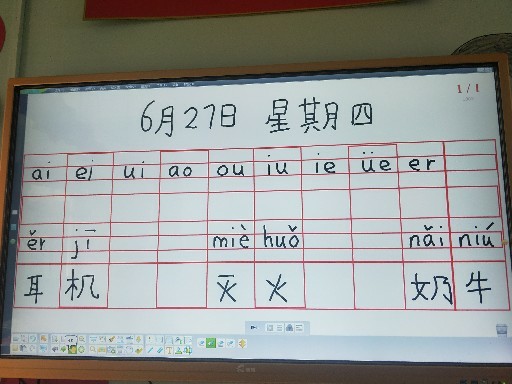 6月27日 星期四
1/1
ai ei ui ao ou iu ie üe er
ěr jī miè huǒ nǎi niú
耳 机 灭 火 奶 牛